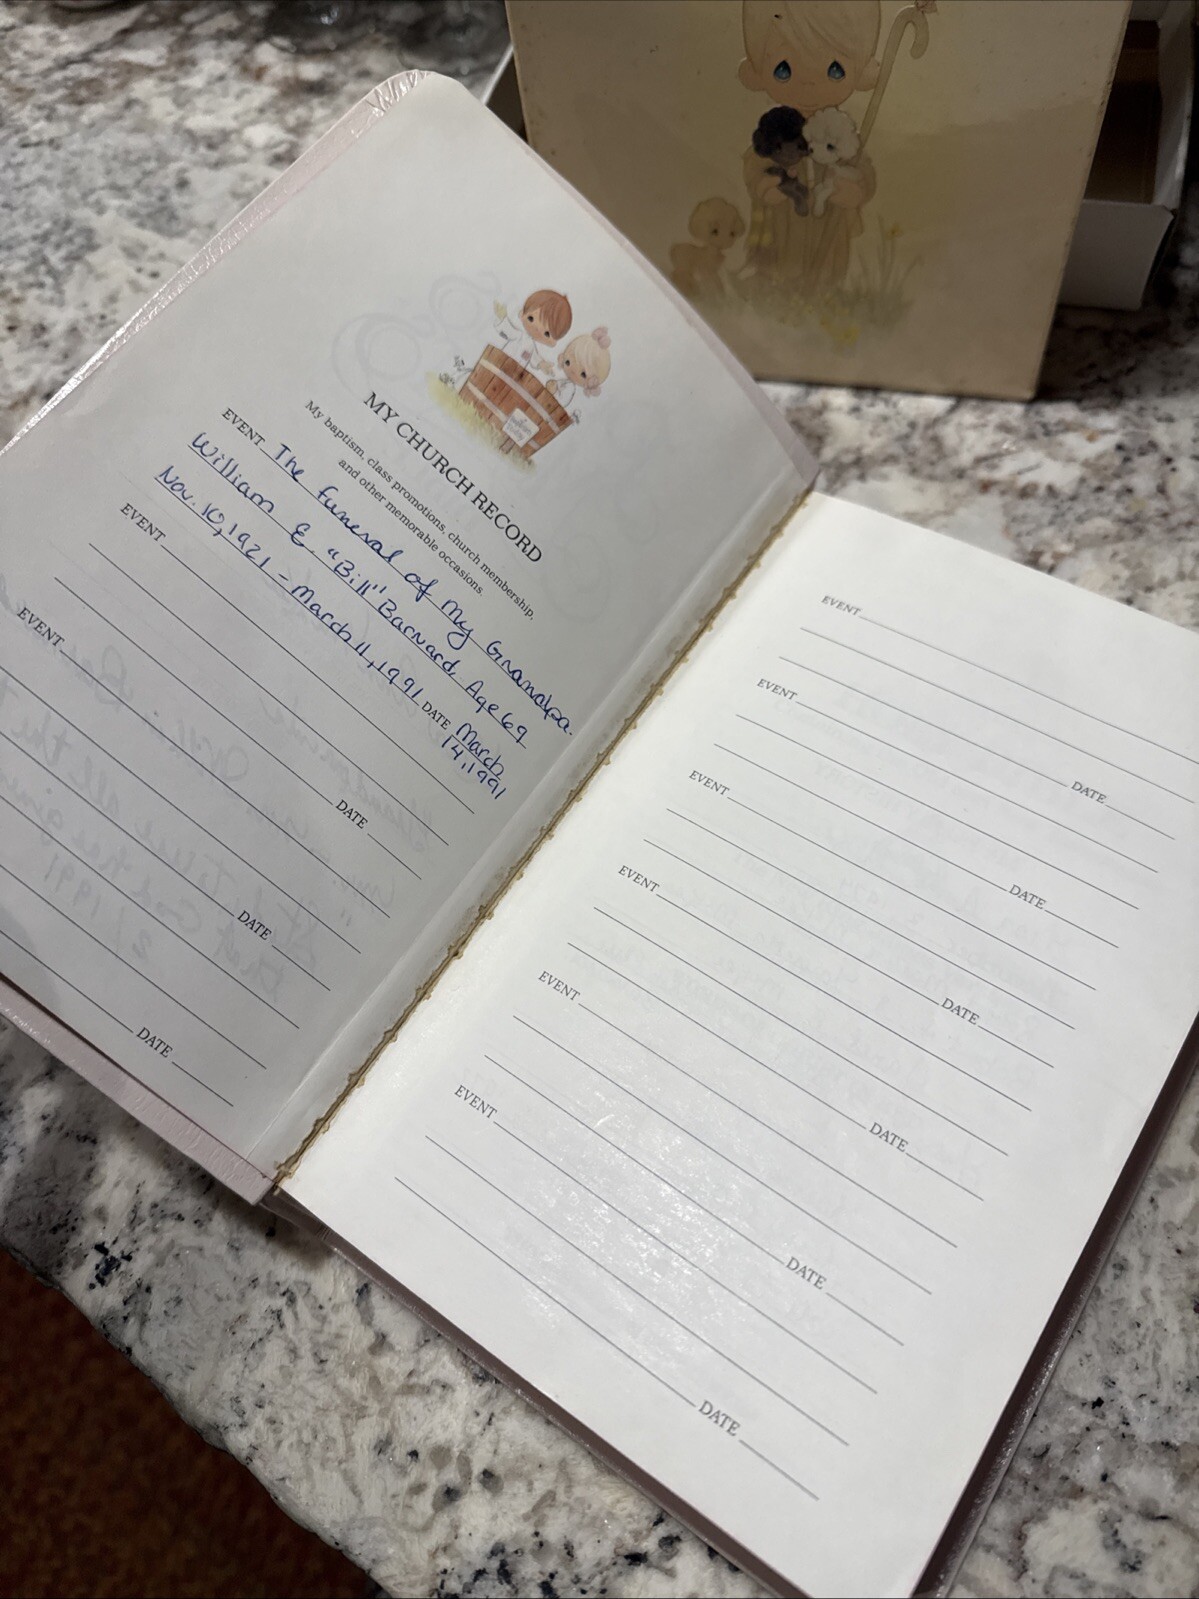 MY CHURCH RECORD
My baptism, class promotions, church membership,
and other memorable occasions.
EVENT The funeral of My Grandpa.
William E. "Bill" Barnard, Age 69
Nov. 10, 1921 - March 11, 1991 DATE March
14, 1991
EVENT
DATE
EVENT
DATE
DATE
EVENT
DATE
EVENT
DATE
EVENT
DATE
EVENT
DATE
EVENT
DATE
EVENT
DATE